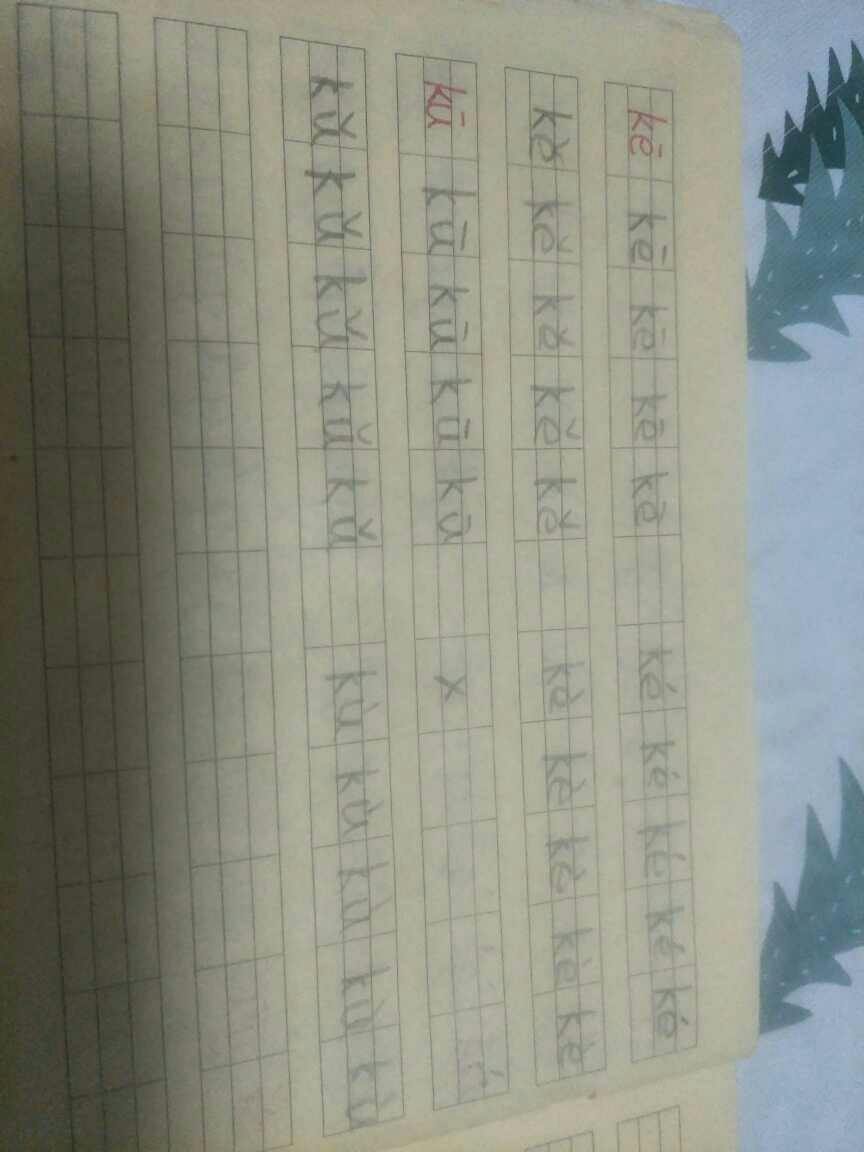 kē kē kē kē kē ké ké ké ké ké
kě kě kě kě kě kè kè kè kè kè
kū kū kū kū kū x
kǔ kǔ kǔ kǔ kǔ kù kù kù kù kù